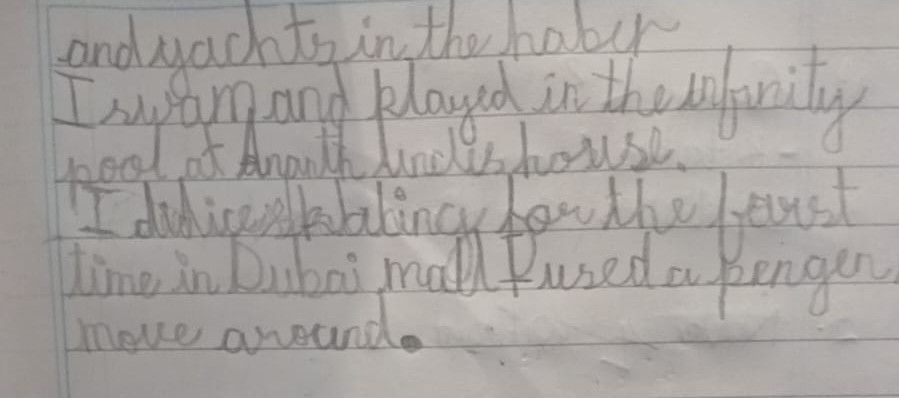 and yachts in the haber
I swam and played in the infinity
pool at Ananth Uncle's house.
I did ice skating for the feurst
time in Dubai mall I used a pengen
move around.